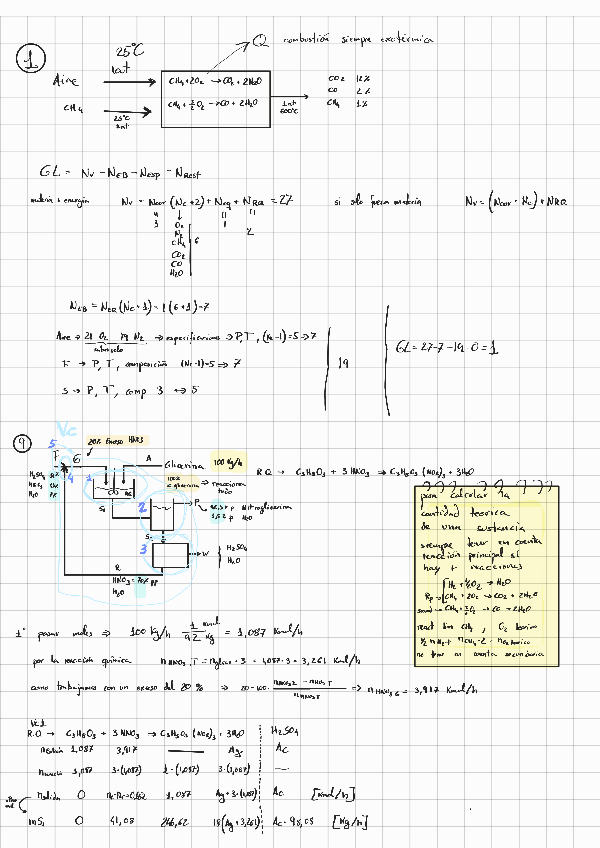 1.
25°C
1 at
Q combustión siempre exotérmica
Aire
CH4 + 2O2 → CO2 + 2H2O
CH4 + 3/2 O2 → CO + 2H2O
CO2 12%
CO 2%
CH4 1%
CH4
25°C
1 at
1 at
500°C
GL = Nv - NEB - NEsp - NRest
materia + energía Nv = Ncor (Nc+2) + Neq + NRQ = 27 si sólo fuera materia Nv = (Ncor · Nc) + NRQ
3
O2
N2
CH4
CO2
CO
H2O
6
1
2
NEB = NEQ (Nc+1) = 1 (6+1) = 7
Aire → 21 O2 79 N2 → especificaciones → P, T, (Nc-1)=5 → 7
F → P, T, composición (Nc-1)=5 → 7
S → P, T, comp 3 → 5
19
GL = 27-7-19-0 = 1
9
Vc
20% Exceso HNO3
5
F
6
4
A
Glicerina 100 Kg/h
H2SO4
HNO3
H2O
1
100% glicerina → reacciona todo
S1
2
P
Nitroglicerina
H2O
S2
3
W
H2SO4
H2O
R
HNO3 = 70%
H2O
RQ → C3H8O3 + 3HNO3 → C3H5O3 (NO2)3 + 3H2O
para calcular la
cantidad teorica
de una sustancia
siempre tener en cuenta
reacción principal si
hay + reacciones
H2 + 1/2 O2 → H2O
Rp → CH4 + 2O2 → CO2 + 2H2O
CH4 + 3/2 O2 → CO + 2H2O
no tener en cuenta secundaria
1° pasar moles ⇒ 100 Kg/h 1/92 Kmol/Kg = 1,087 Kmol/h
por la reacción química nHNO3,T = nglic · 3 = 1,087 · 3 = 3,261 Kmol/h
como trabajamos con un exceso del 20% ⇒ 20 = 100 · (nHNO3 - nHNO3T)/nHNO3T ⇒ nHNO3 6 = 3,917 Kmol/h
Vc1
RQ → C3H8O3 + 3HNO3 → C3H5O3 (NO2)3 + 3H2O H2SO4
1,087 3,917 — Ag Ac
1,087 3·(1,087) 1·(1,087) 3·(1,087) —
nsalida 0 1,087 Ag + 3·(1,087) Ac [Kmol/h]
mS1 0 41,08 246,62 18(Ag + 3,261) Ac · 98,08 [Kg/h]